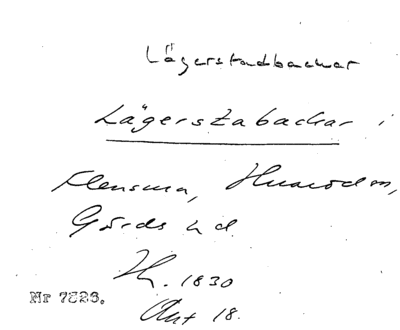 Lägerstadbackar
Lägerstabackar i
Flensma,
Gärds hd.
1830
Akt 18.
Nr 7823.